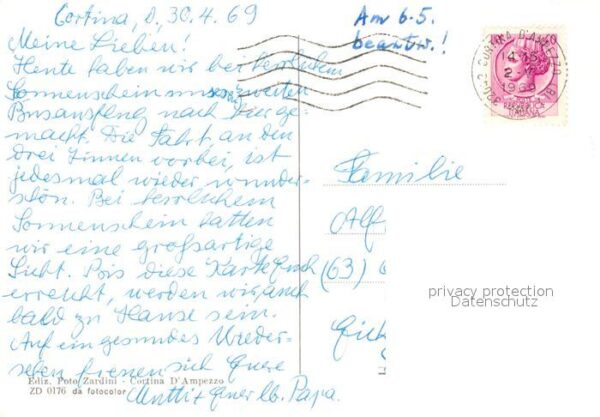 Cortina, d, 30.4.69
Am 6.5.
beantw.!
Meine Lieben!
Heute haben wir bei herrlichem
Sonnenschein unseren zweiten
Busausflug nach hier ge-
macht. Die Fahrt, an den
Drei Zinnen vorbei, ist
jedesmal wieder wunder-
schön. Bei herrlichem
Sonnenschein hatten
wir eine großartige
Sicht. Bis diese Karte Euch
erreicht, werden wir auch
bald zu Hause sein.
Auf ein gesundes Wieder-
sehen freuen sich Eure
Mutti & Euer lb. Papa.
Familie
Alf
(63)
Eich
CORTINA D'AMPEZZO
14-15
2-
1969
privacy protection
Datenschutz
Ediz. Foto Zardini - Cortina D'Ampezzo
ZD 0176 da fotocolor